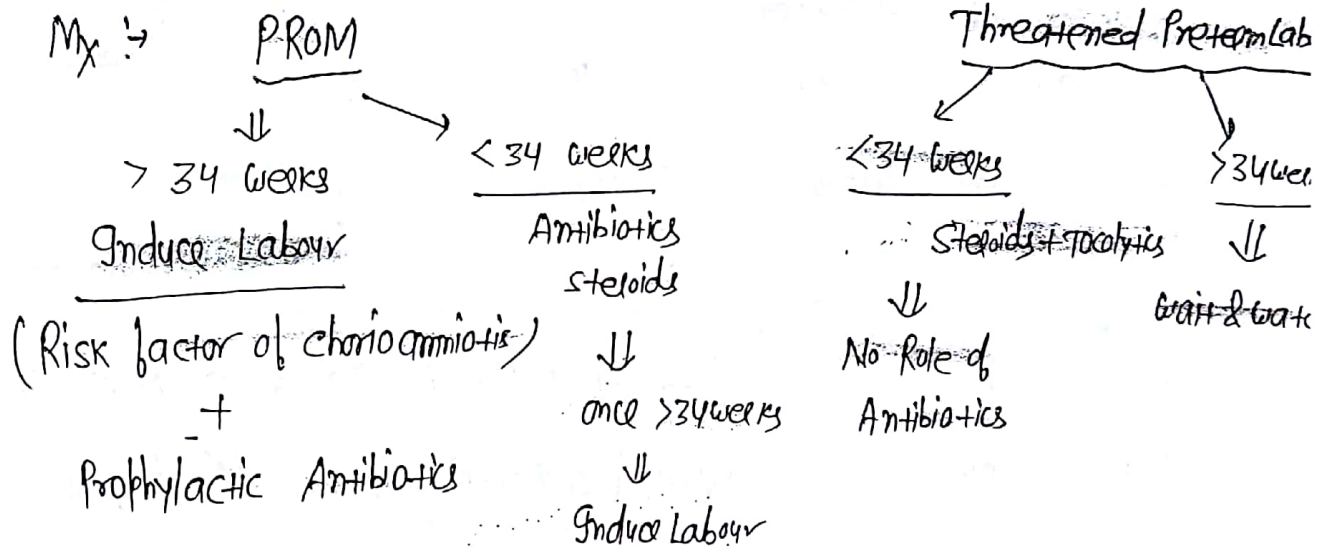 Mx :→ PROM
> 34 weeks
Induce Labour
(Risk factor of Chorioamniotis)
+
Prophylactic Antibiotics
< 34 weeks
Antibiotics
Steroids
once >34weeks
Induce Labour
Threatened Preterm Lab
<34 weeks
Steroids + Tocolytics
No Role of
Antibiotics
>34wee
wait & watc